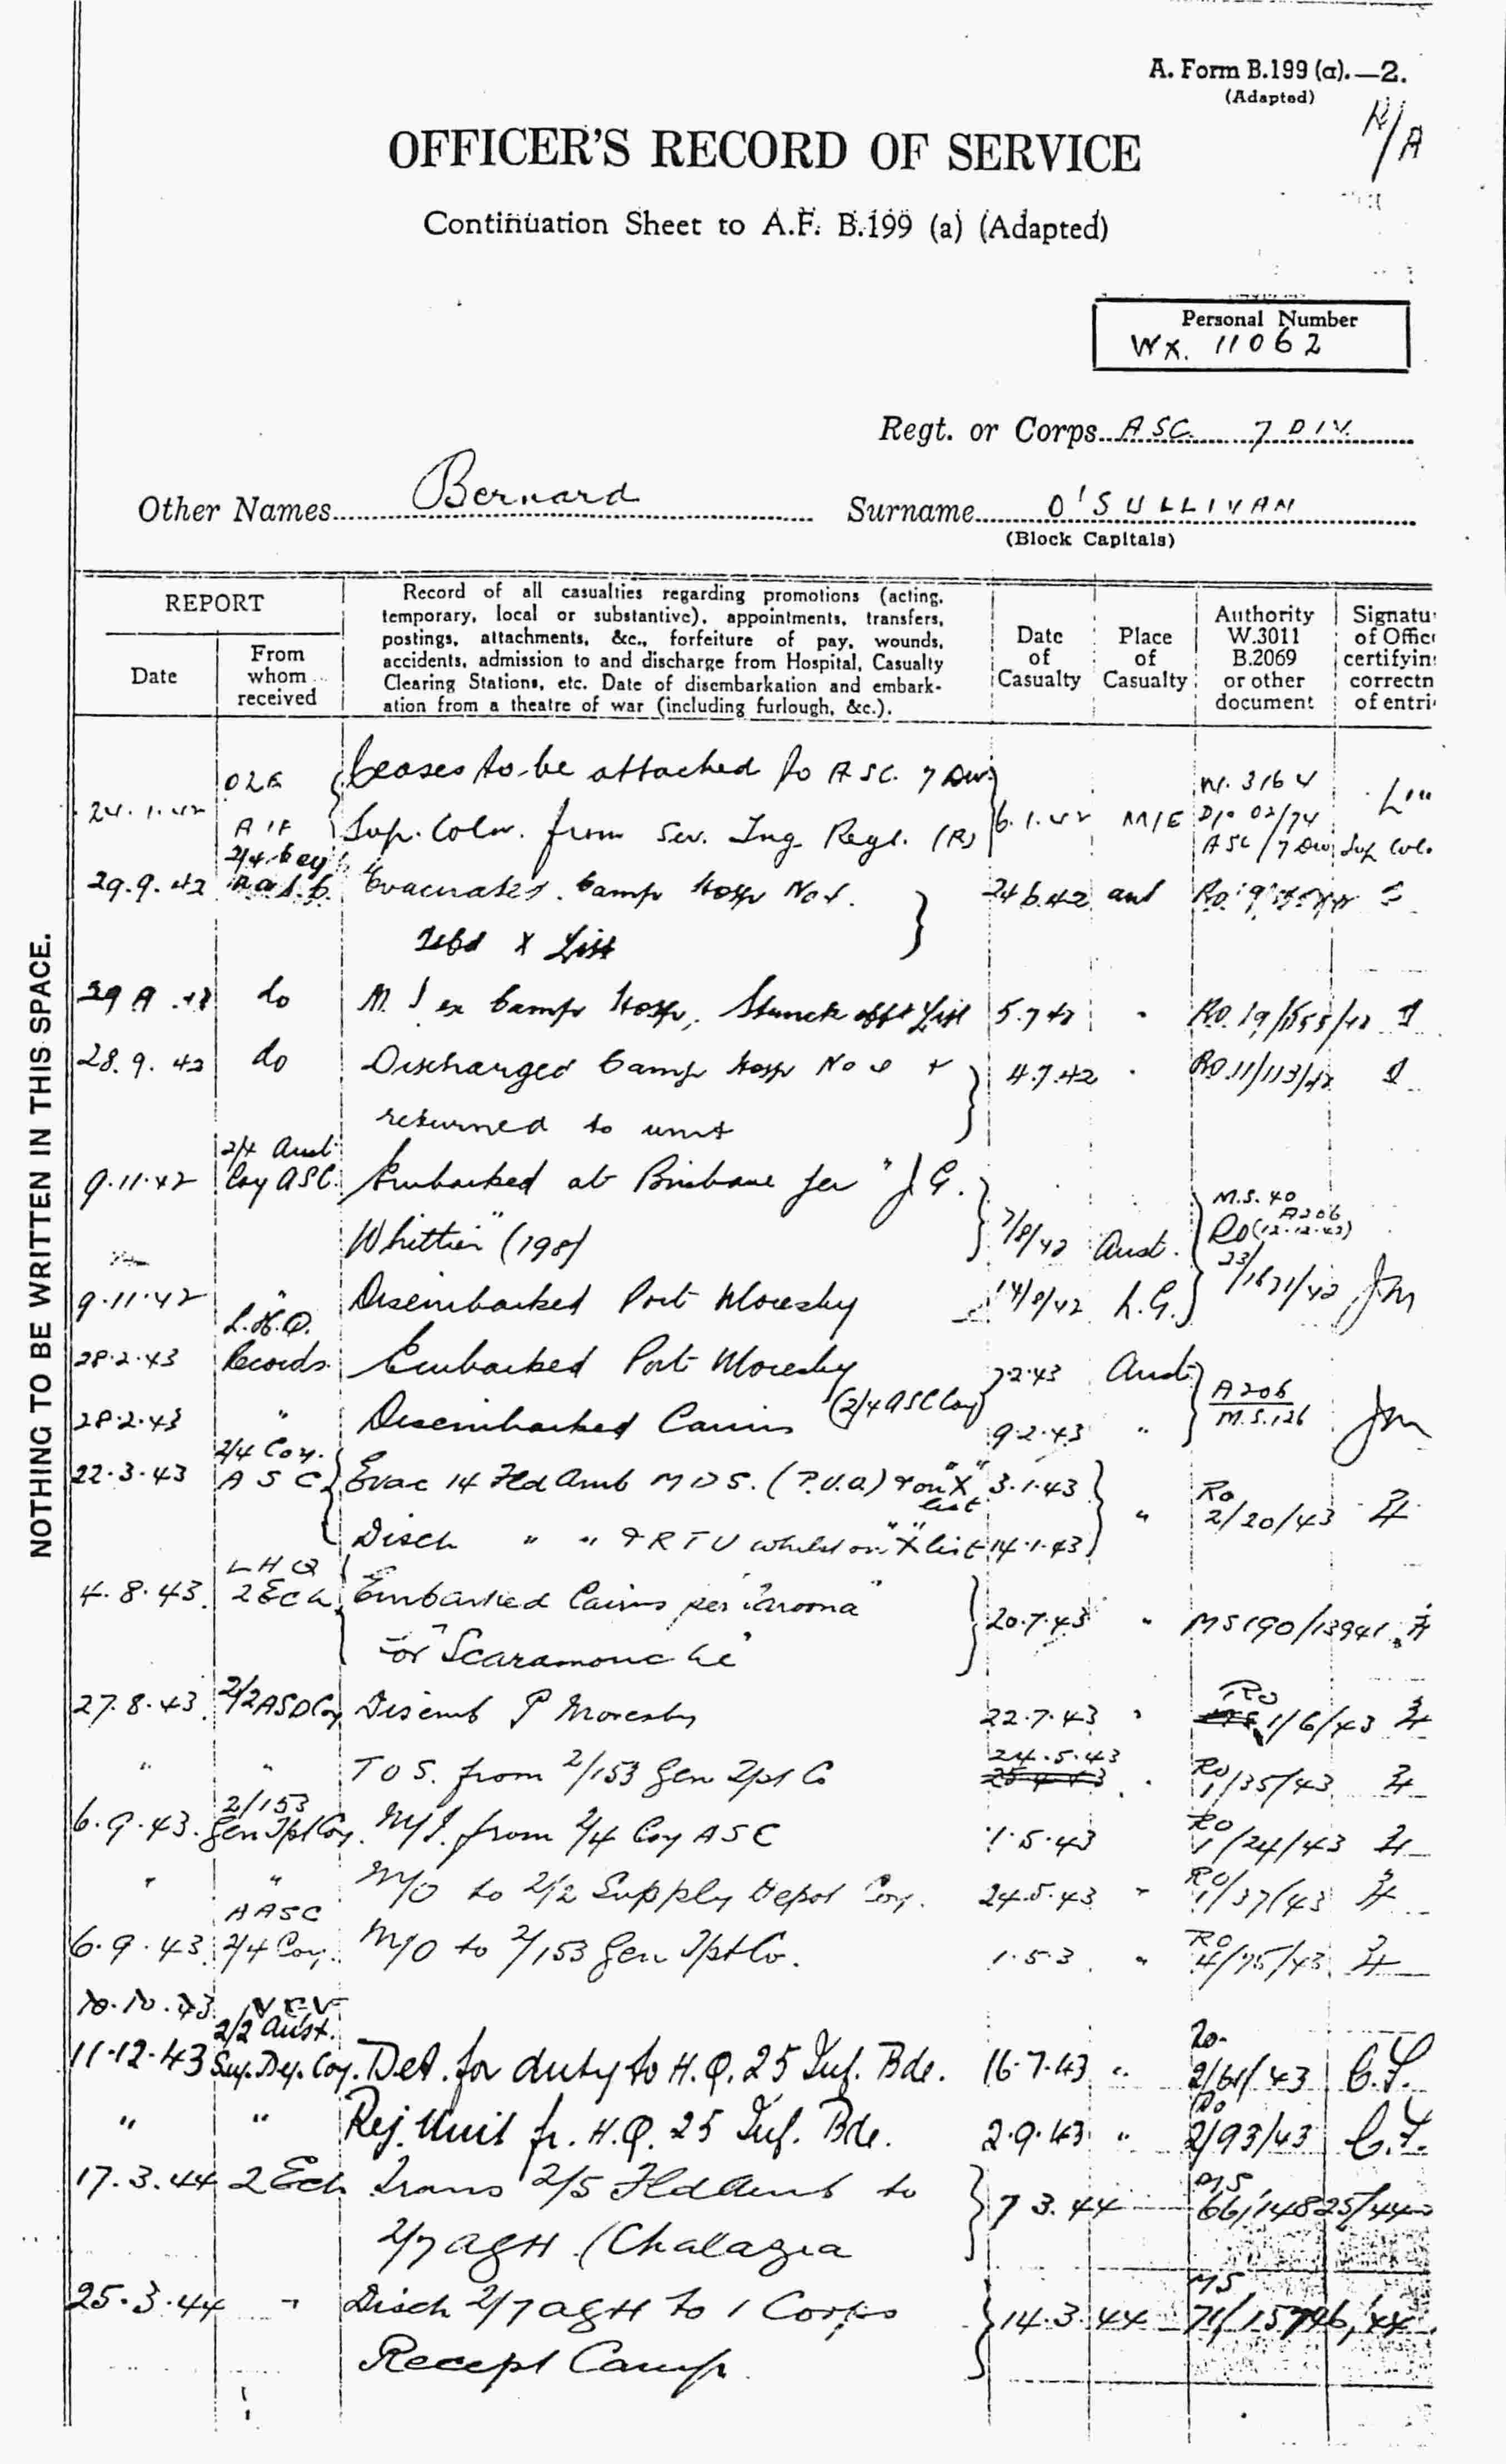 A. Form B.199 (a).—2.
(Adapted)
R/A
OFFICER'S RECORD OF SERVICE
Continuation Sheet to A.F. B.199 (a) (Adapted)
Personal Number
WX. 11062
Regt. or Corps ASC. 7 DIV.
Other Names Bernard Surname O'SULLIVAN
(Block Capitals)
NOTHING TO BE WRITTEN IN THIS SPACE.
REPORT
Date
From whom received
Record of all casualties regarding promotions (acting,
temporary, local or substantive), appointments, transfers,
postings, attachments, &c., forfeiture of pay, wounds,
accidents, admission to and discharge from Hospital, Casualty
Clearing Stations, etc. Date of disembarkation and embark-
ation from a theatre of war (including furlough, &c.).
Date of Casualty
Place of Casualty
Authority W.3011 B.2069 or other document
Signatu of Offic certifyin correctn of entri
Ceases to be attached to ASC. 7 Div.
24.1.42 AIF Sup. Coln. from Sev. Ing Regt. (R) 6.1.42 M/E
W. 3164
ASC/7 Div Sup Col.
2/4 Coy
29.9.42 Evacuated Camp Hosp No 1. 24.6.42 aust
X List
do M. I ex Camp Hosp, Struck off X List 5.7.42
28.9.42 do Discharged Camp Hosp No 4.7.42 RO 11/113/42
returned to unit
2/4 Aust
9.11.42 Coy ASC. Embarked at Brisbane per "J.G.
Whittier" (198) 7/8/42 Aust.
M.S. 40
A206
RO (12.12.42)
23/1631/42 Jm
9.11.42 " Disembarked Port Moresby 14/8/42 N.G.
L.H.Q.
28.2.43 Records. Embarked Port Moresby 7.2.43 Aust.
(2/4 ASC Coy)
28.2.43 " Disembarked Cairns 9.2.43 "
A206
M.S.126 Jm
2/4 Coy.
22.3.43 ASC Evac 14 Fld Amb MDS. (P.U.O) & on "X" list 3.1.43 " RO 2/20/43
Disch " " & RTU whilst on "X" list 14.1.43
LHQ
4.8.43. 2 Ech Embarked Cairns per "Taroona"
for "Scaramouche" 20.7.43 " MS190/13941
27.8.43. 2/2 ASD Coy Disemb P Moresby 22.7.43 " RO 1/6/43
" " TOS. from 2/153 Gen Tpt Co 24.5.43 RO 1/35/43
6.9.43. 2/153 Gen Tpt Coy. M/I. from 2/4 Coy ASC 1.5.43 RO 1/24/43
" " M/O to 2/2 Supply Depot Coy. 24.5.43 " RO 1/37/43
AASC
6.9.43. 2/4 Coy. M/O to 2/153 Gen Tpt Co. 1.5.3 " RO 4/75/43
10.10.43
2/2 Aust.
11.12.43 Sup. Dep. Coy. Det. for duty to H.Q. 25 Inf. Bde. 16.7.43 " Ro. 2/61/43
" " Rej. Unit fr. H.Q. 25 Inf. Bde. 2.9.43 " Ro 2/93/43
17.3.44 2 Ech Trans 2/5 Fld Amb to
2/7 AGH (Chalazia 7 3.44 MS 66/14825/44
25.3.44 " Disch 2/7 AGH to 1 Corps
Recept Camp. 14.3.44 MS 71/15796/44